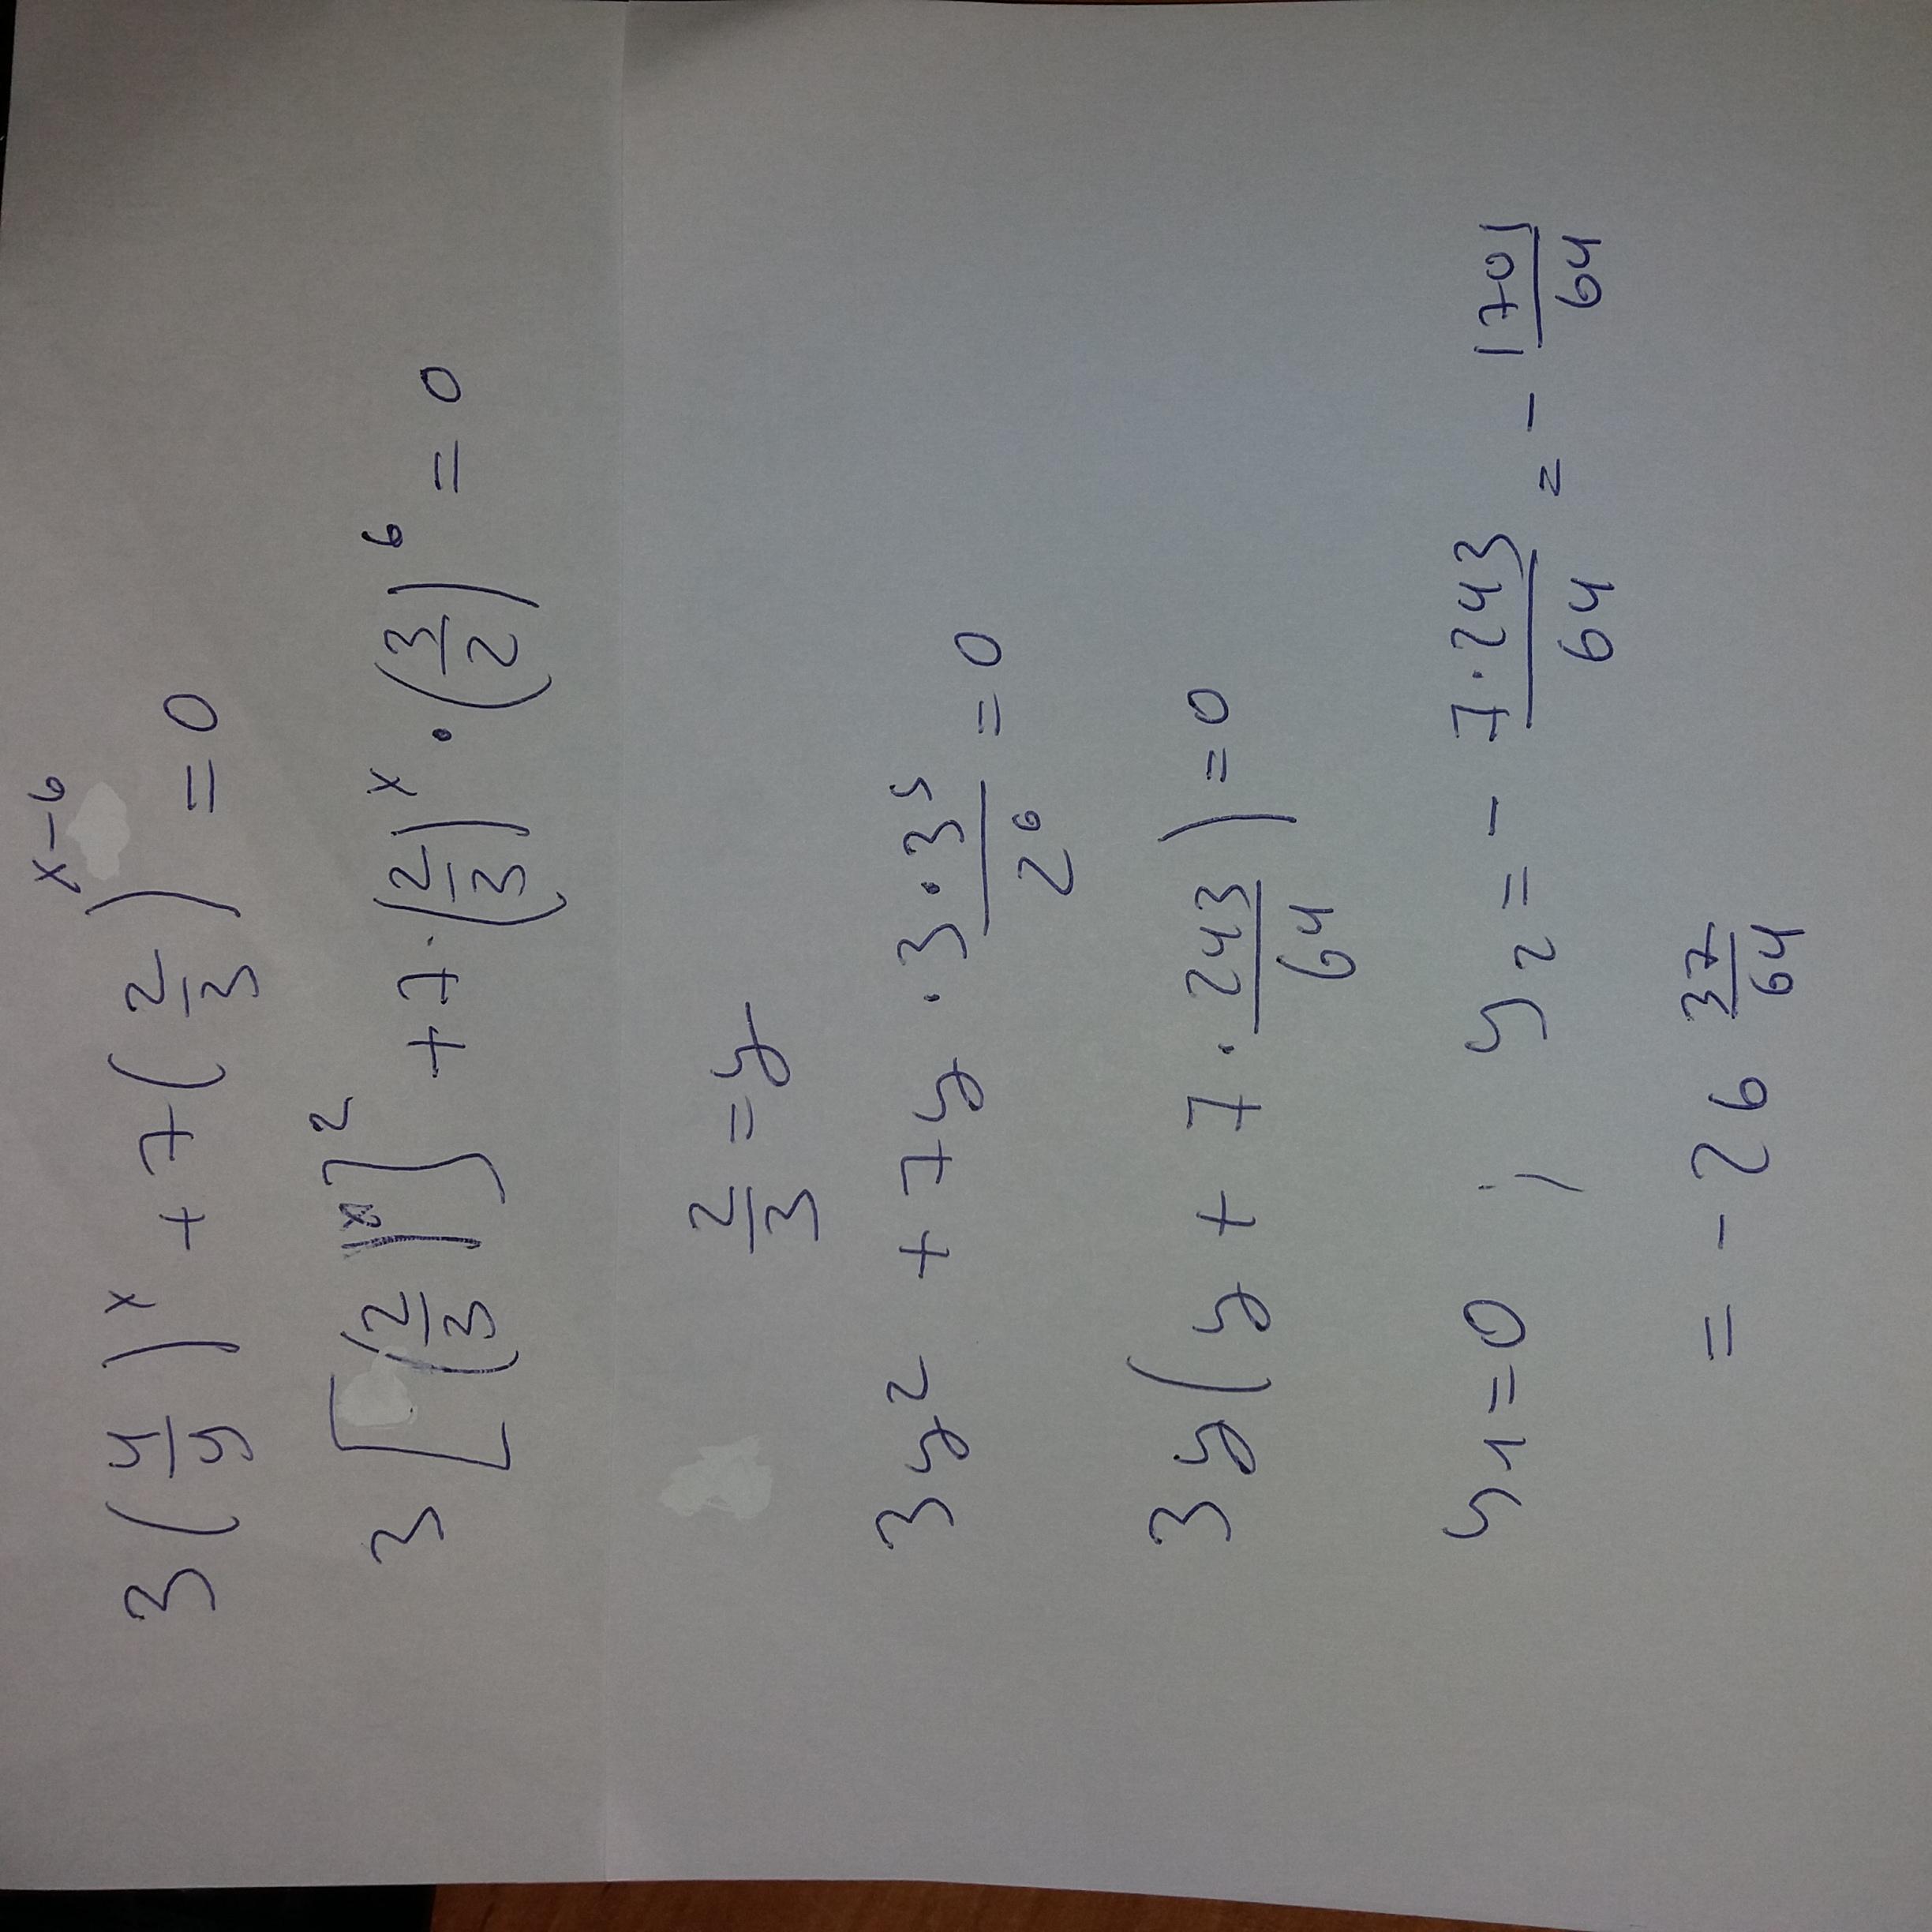 3(4/9)^x + 7(2/3)^x-6 = 0
3[(2/3)^x]^2 + 7·(2/3)^x · (3/2)^6 = 0
2/3 = y
3y^2 + 7y · 3·3^5/2^6 = 0
3y(y + 7·243/64) = 0
y1=0 ; y2 = - 7·243/64 = - 1701/64
= - 26 37/64